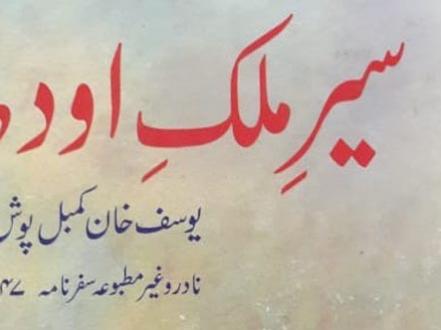 سیرِ ملکِ اودھ
یوسف خان کمبل پوش
نادر و غیر مطبوعہ سفر نامہ ۴۷